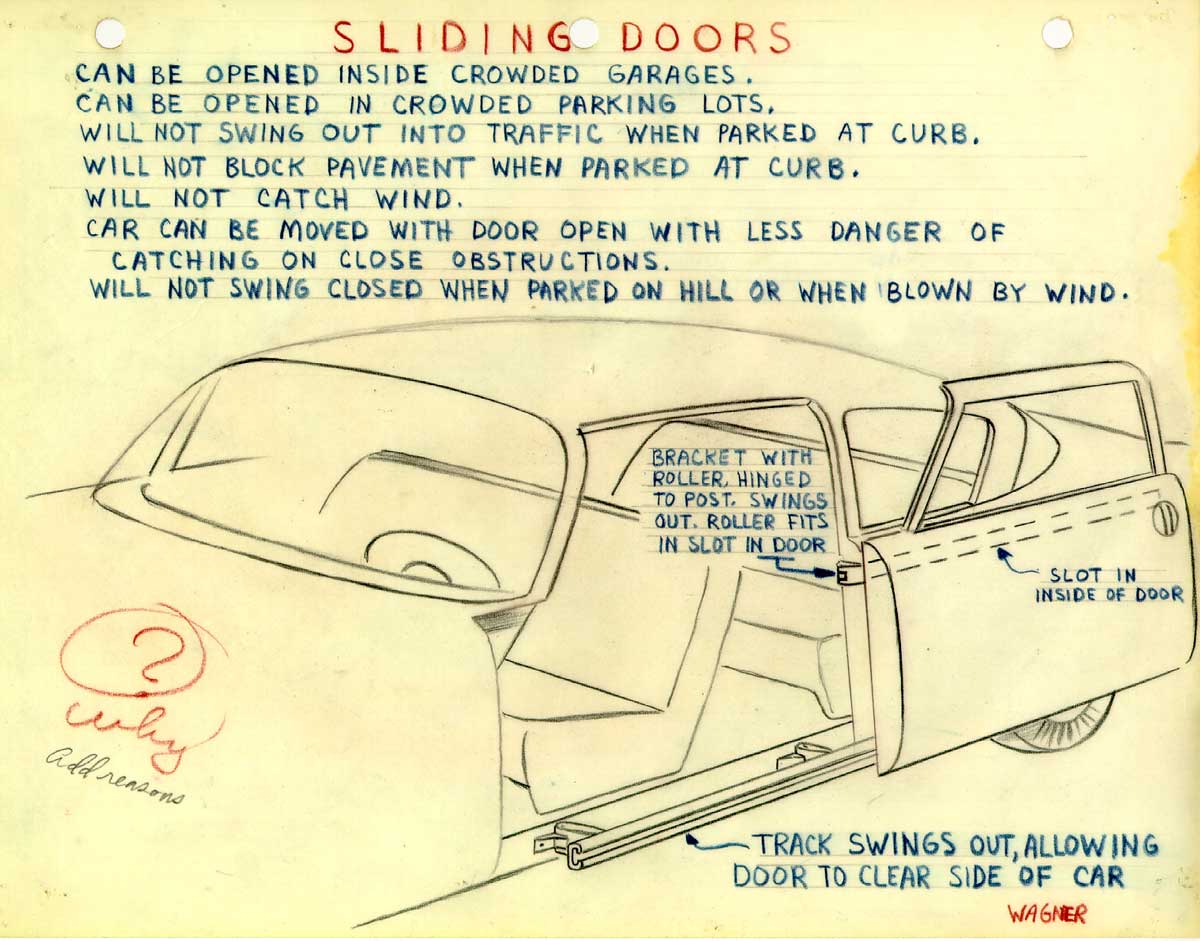 SLIDING DOORS
CAN BE OPENED INSIDE CROWDED GARAGES.
CAN BE OPENED IN CROWDED PARKING LOTS.
WILL NOT SWING OUT INTO TRAFFIC WHEN PARKED AT CURB.
WILL NOT BLOCK PAVEMENT WHEN PARKED AT CURB.
WILL NOT CATCH WIND.
CAR CAN BE MOVED WITH DOOR OPEN WITH LESS DANGER OF
CATCHING ON CLOSE OBSTRUCTIONS.
WILL NOT SWING CLOSED WHEN PARKED ON HILL OR WHEN BLOWN BY WIND.
BRACKET WITH
ROLLER, HINGED
TO POST. SWINGS
OUT. ROLLER FITS
IN SLOT IN DOOR
SLOT IN
INSIDE OF DOOR
?
why
Add reasons
TRACK SWINGS OUT, ALLOWING
DOOR TO CLEAR SIDE OF CAR
WAGNER